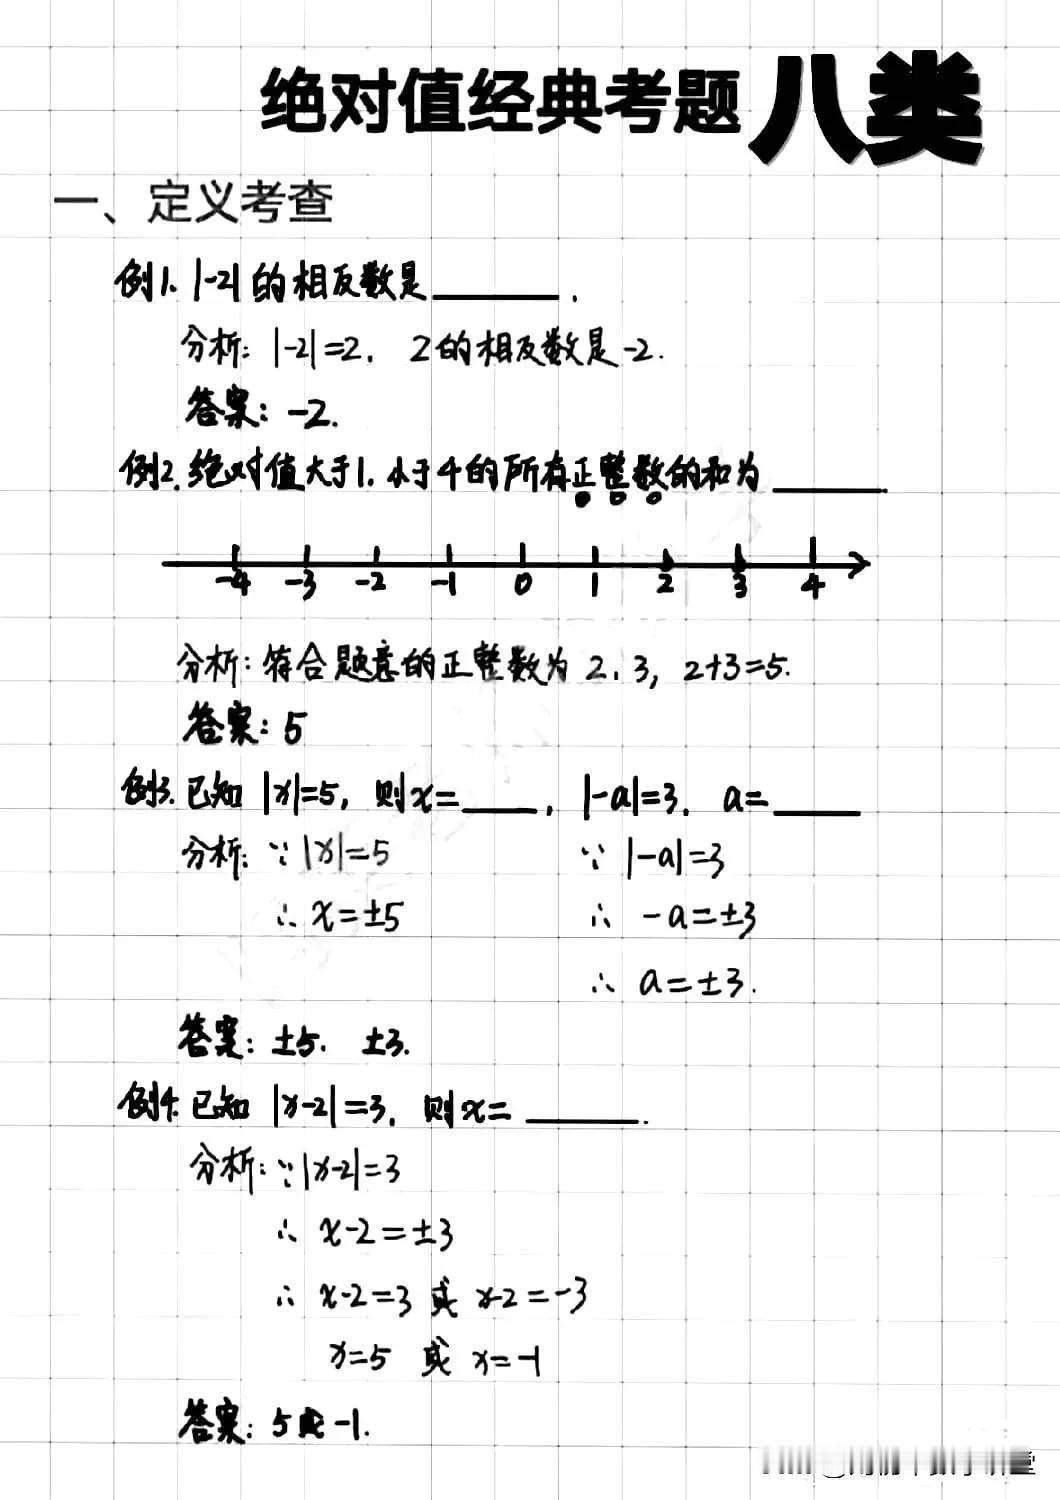 绝对值经典考题八类
一、定义考查
例1. |-2|的相反数是______.
分析: |-2|=2, 2的相反数是-2.
答案: -2.
例2. 绝对值大于1, 小于4的所有正整数的和为______
-4 -3 -2 -1 0 1 2 3 4
分析: 符合题意的正整数为2, 3, 2+3=5.
答案: 5
例3. 已知 |x|=5, 则x=____, |-a|=3, a=____
分析: ∵|x|=5 ∵ |-a|=3
∴ x=±5 ∴ -a=±3
∴ a=±3.
答案: ±5. ±3.
例4. 已知 |x-2|=3, 则x=______.
分析: ∵|x-2|=3
∴ x-2=±3
∴ x-2=3 或 x-2=-3
x=5 或 x=-1
答案: 5或-1.